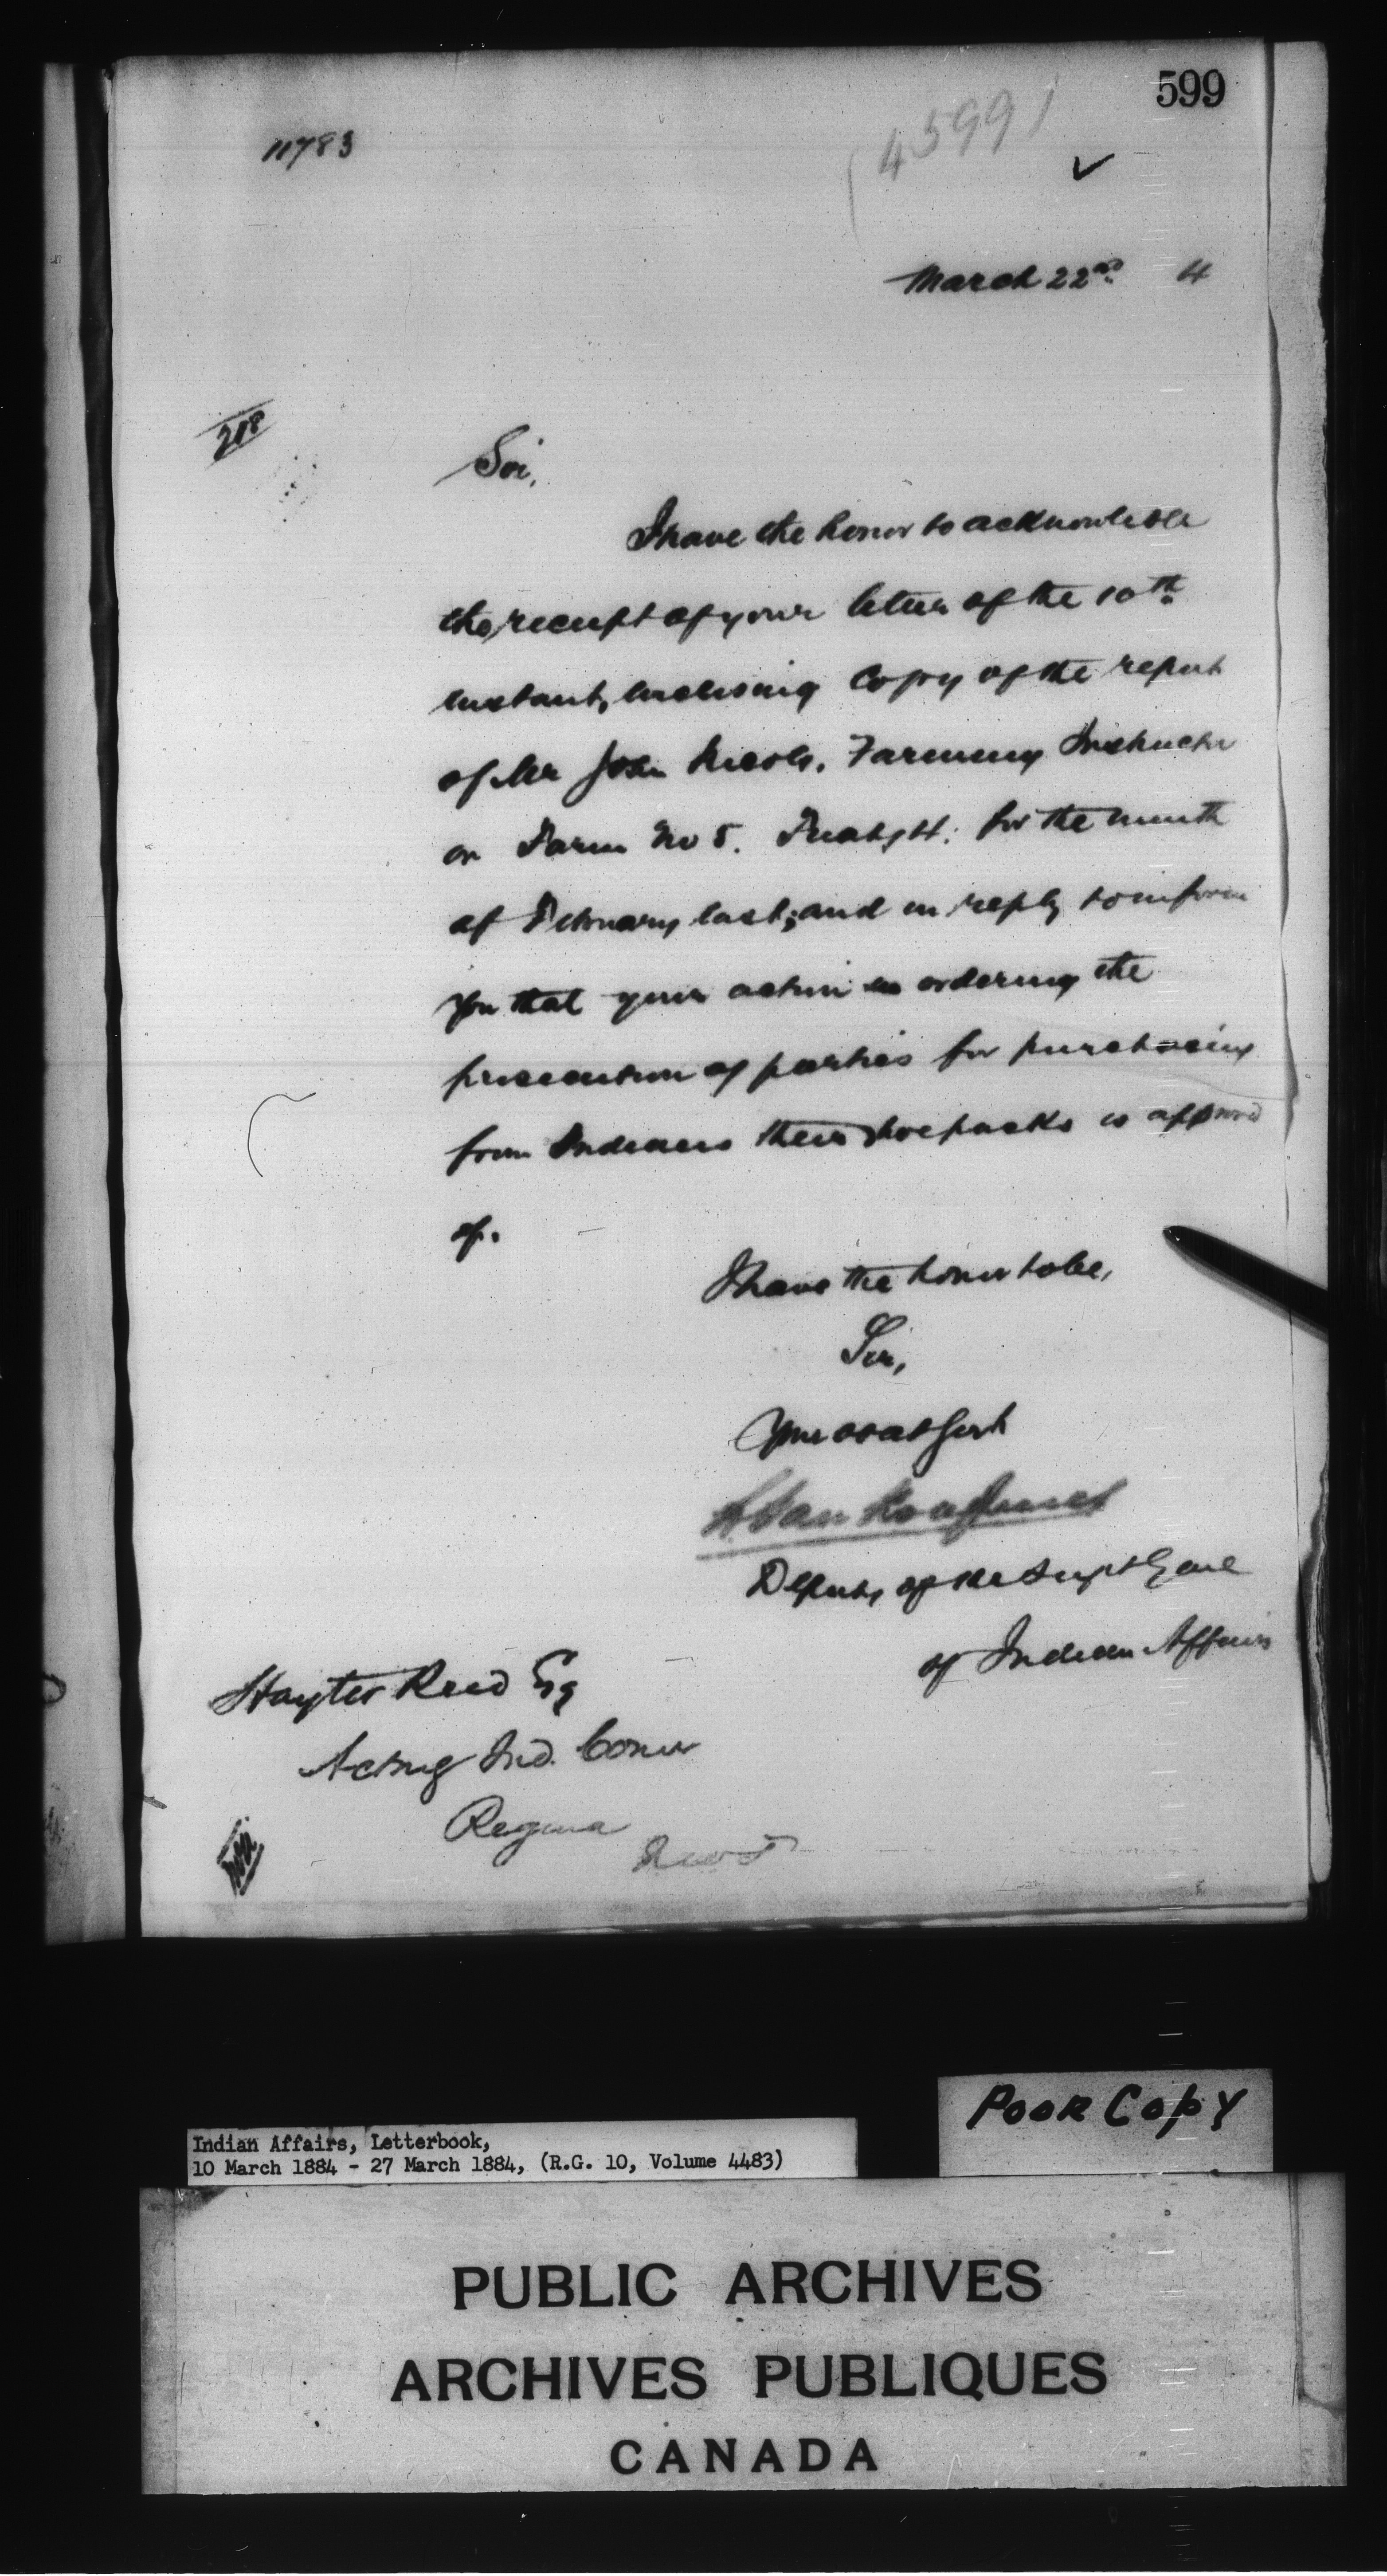 599
11783
(45991
March 22nd 4
Sir,
I have the honor to acknowledge
the receipt of your letter of the 10th
instant, enclosing Copy of the report
of Mr John Nicols, Farming Instructor
on Farm No 5. Treaty 4. for the month
of February last; and in reply to inform
you that your action in ordering the
prosecution of parties for purchasing
from Indians their shoepacks is approved
of.
I have the honor to be,
Sir,
Your obedt Servt
L. VanKoughnet
Deputy of the Supt Genl
of Indian Affairs
Hayter Reed Esq
Acting Ind. Comr
Regina
NWT
Poor Copy
Indian Affairs, Letterbook,
10 March 1884 - 27 March 1884, (R.G. 10, Volume 4483)
PUBLIC ARCHIVES
ARCHIVES PUBLIQUES
CANADA